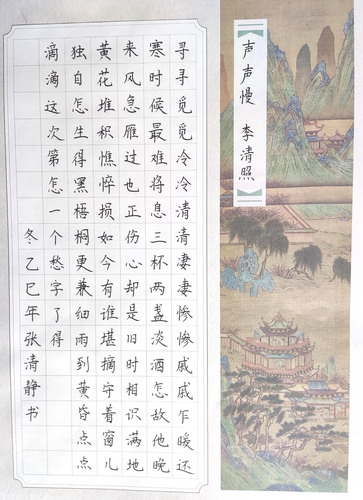 声声慢 李清照
寻寻觅觅冷冷清清凄凄惨惨戚戚乍暖还
寒时候最难将息三杯两盏淡酒怎敌他晚
来风急雁过也正伤心却是旧时相识满地
黄花堆积憔悴损如今有谁堪摘守着窗儿
独自怎生得黑梧桐更兼细雨到黄昏点点
滴滴这次第怎一个愁字了得
冬乙巳年张清静书